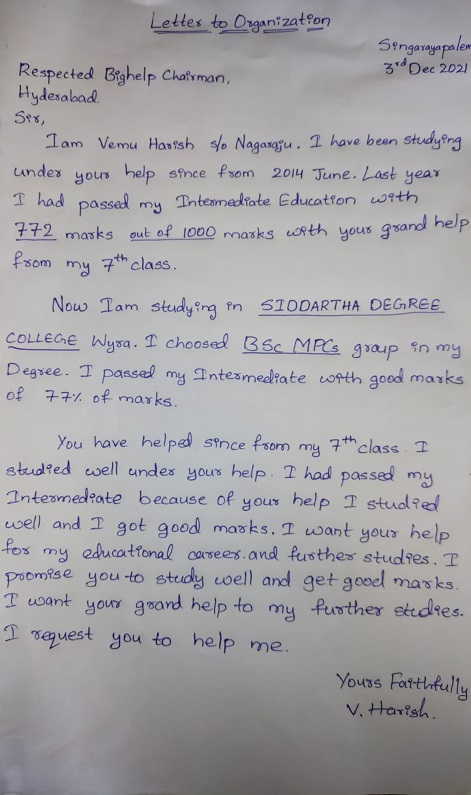 Letter to Organization
Singarayapalem
3rd Dec 2021
Respected Bighelp Chairman,
Hyderabad.
Sir,
Iam Vemu Harish s/o Nagaraju. I have been studying
under your help since from 2014 June. Last year
I had passed my Intermediate Education with
772 marks out of 1000 marks with your grand help
from my 7th class.
Now Iam studying in SIDDARTHA DEGREE
COLLEGE Wyra. I choosed BSc MPCs group in my
Degree. I passed my Intermediate with good marks
of 77% of marks.
You have helped since from my 7th class. I
studied well under your help. I had passed my
Intermediate because of your help I studied
well and I got good marks. I want your help
for my educational career.and further studies. I
promise you to study well and get good marks.
I want your grand help to my further studies.
I request you to help me.
Yours Faithfully
V. Harish.